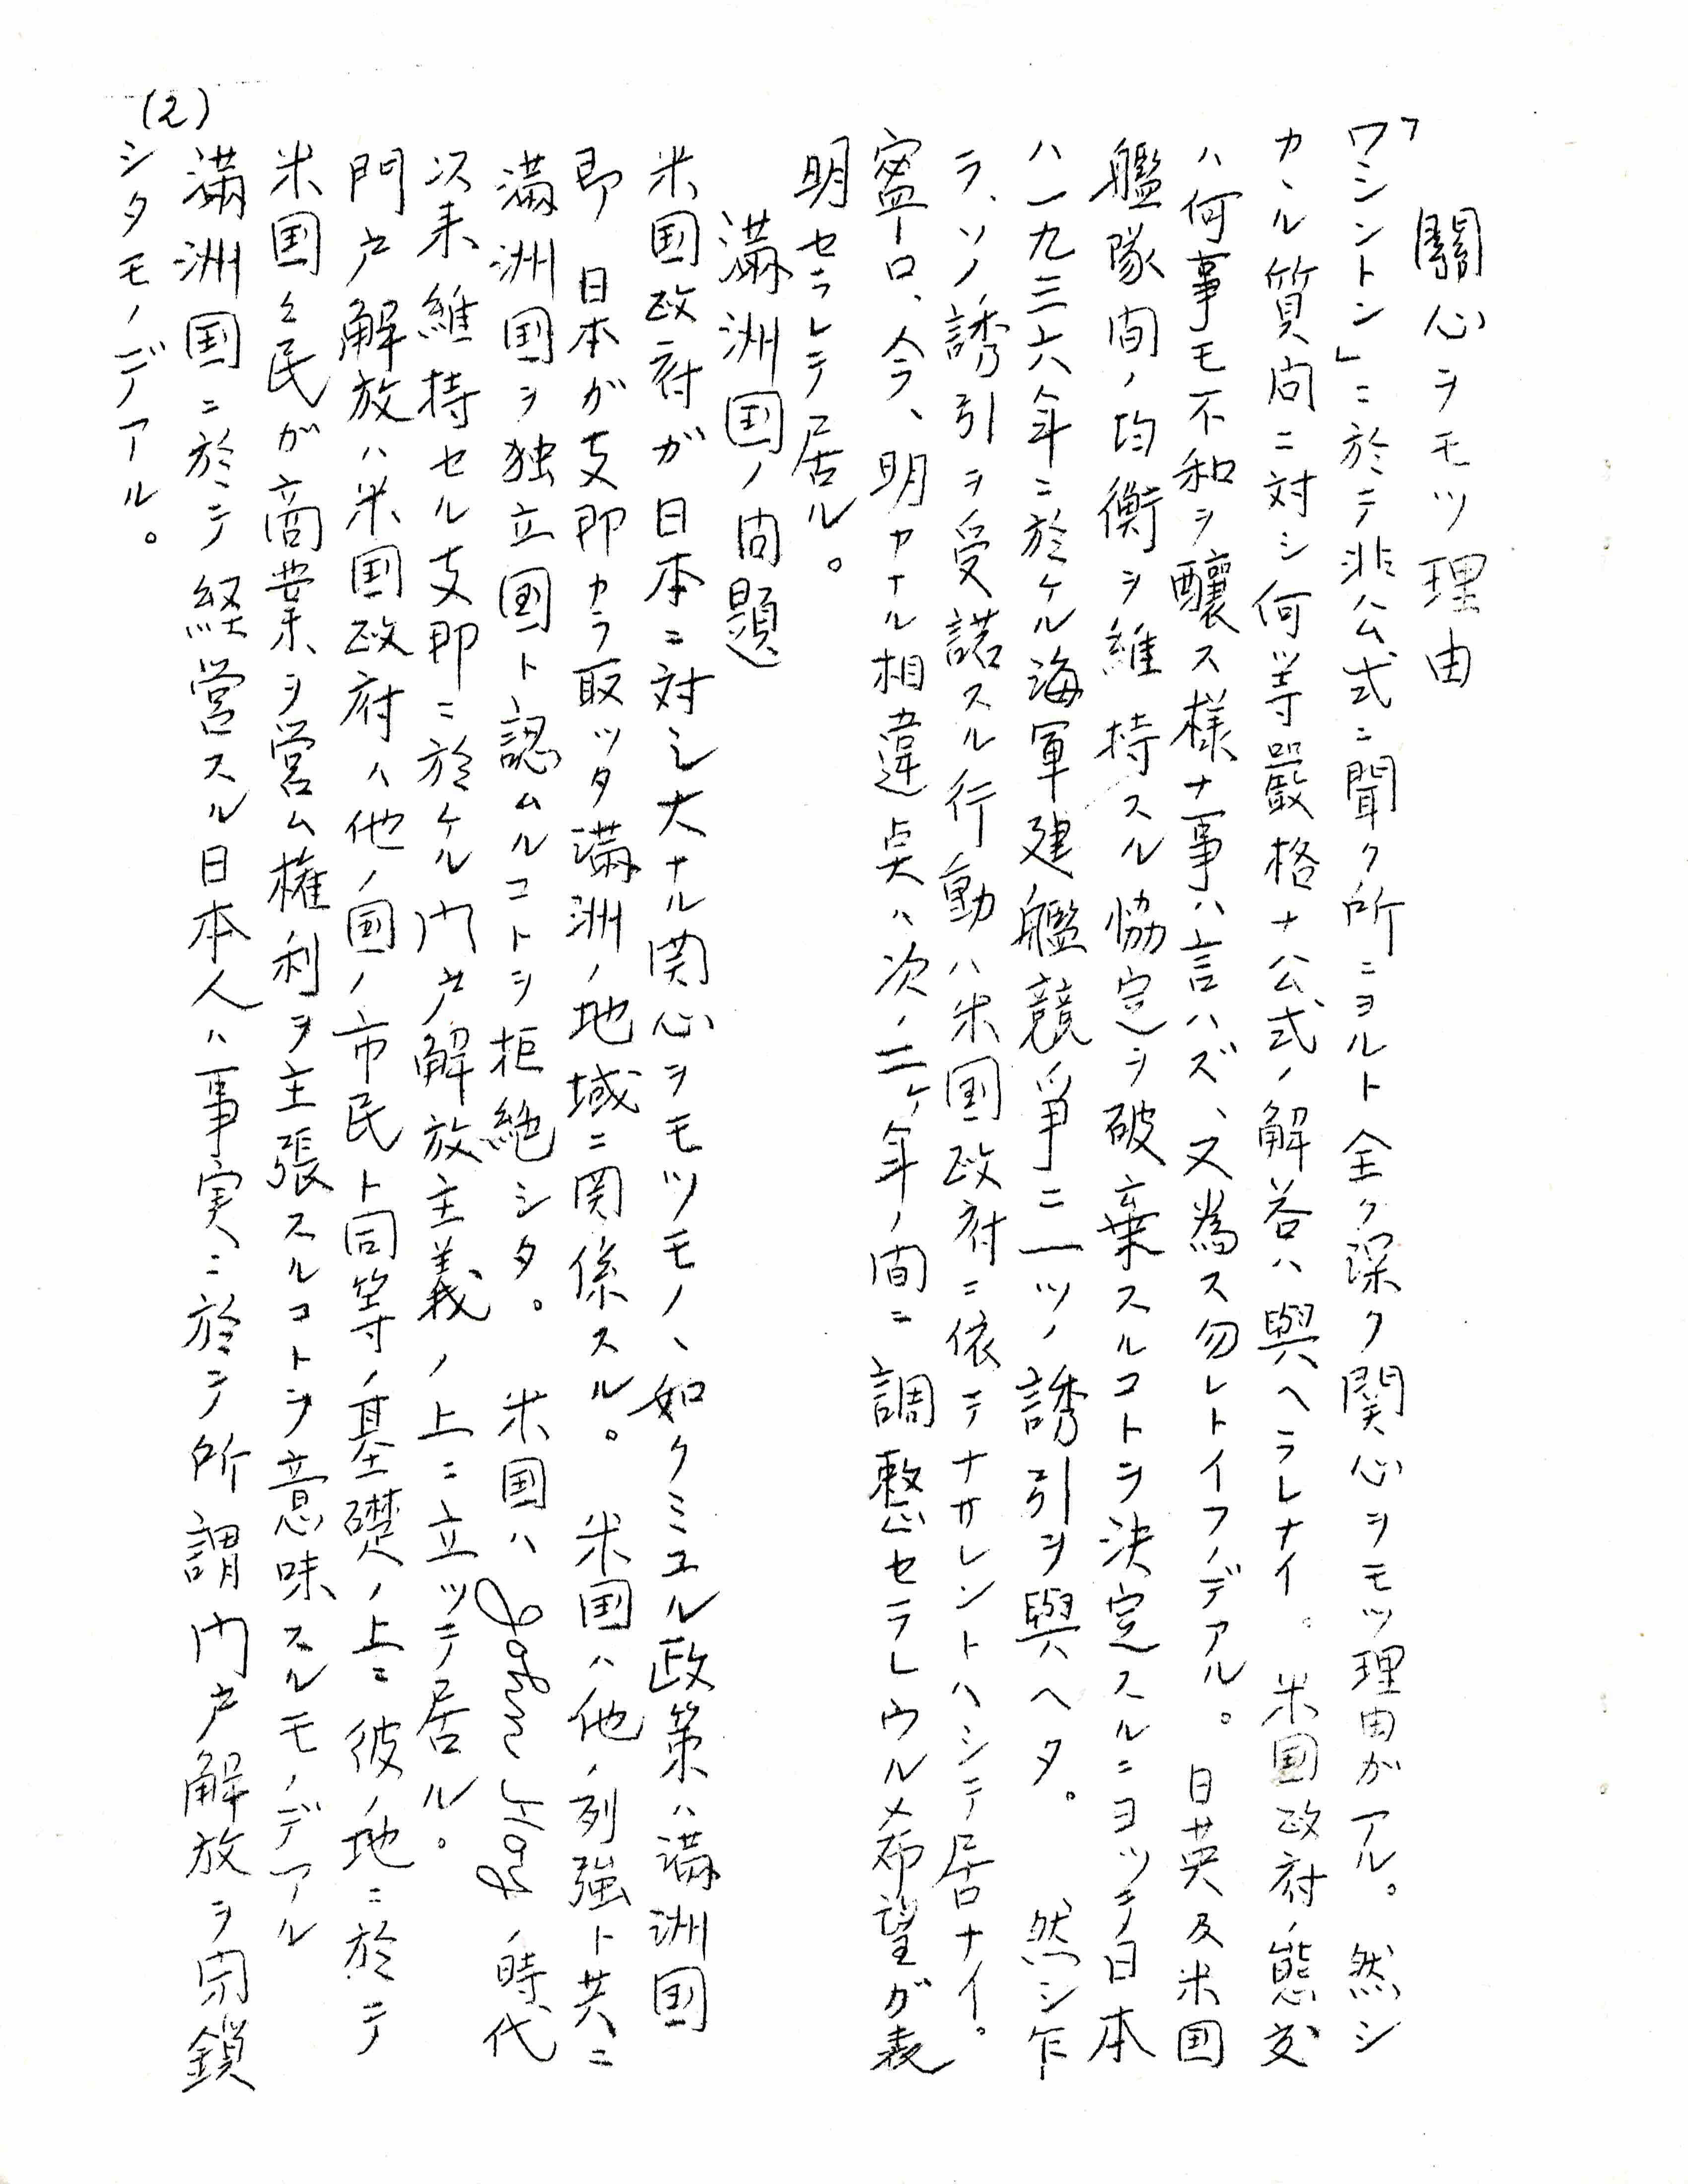 關心ヲモツ理由
「ワシントン」ニ於テ非公式ニ聞ク所ニヨルト全ク深ク関心ヲモツ理由ガアル。然シ
カヽル質问ニ対シ何等嚴格ナ公式ノ解答ハ與ヘラレナイ。米国政府ノ態度
ハ何事モ不和ヲ釀ス様ナ事ハ言ハズ、又為ス勿レトイフノデアル。日英及米国
艦隊间ノ均衡ヲ維持スル協定ヲ破棄スルコトヲ決定スルニヨッテ日本
ハ一九三六年ニ於ケル海軍建艦競争ニ一ツノ誘引ヲ與ヘタ。然シ乍
ラ、ソノ誘引ヲ受諾スル行動ハ米国政府ニ依テナサレントハシテ居ナイ。
寧ロ、今、明カナル相違点ハ次ノ二ケ年ノ间ニ調整セラレウル希望ガ表
明セラレテ居ル。
満洲国ノ问題
米国政府ガ日本ニ対シ大ナル関心ヲモツモノヽ如クミユル政策ハ満洲国
即日本ガ支那カラ取ッタ満洲ノ地域ニ関係スル。米国ハ他ノ列強ト共ニ
満洲国ヲ独立国ト認ムルコトヲ拒絶シタ。米国ハ John Hay ノ時代
以来維持セル支那ニ於ケル门戸解放主義ノ上ニ立ッテ居ル。
門戸解放ハ米国政府ハ他ノ国ノ市民ト同等ノ基礎ノ上ニ彼ノ地ニ於テ
米国々民ガ商業ヲ営ム権利ヲ主張スルコトヲ意味スルモノデアル
満洲国ニ於テ経営スル日本人ハ事実ニ於テ所謂门戸解放ヲ閉鎖
シタモノデアル。
(2)